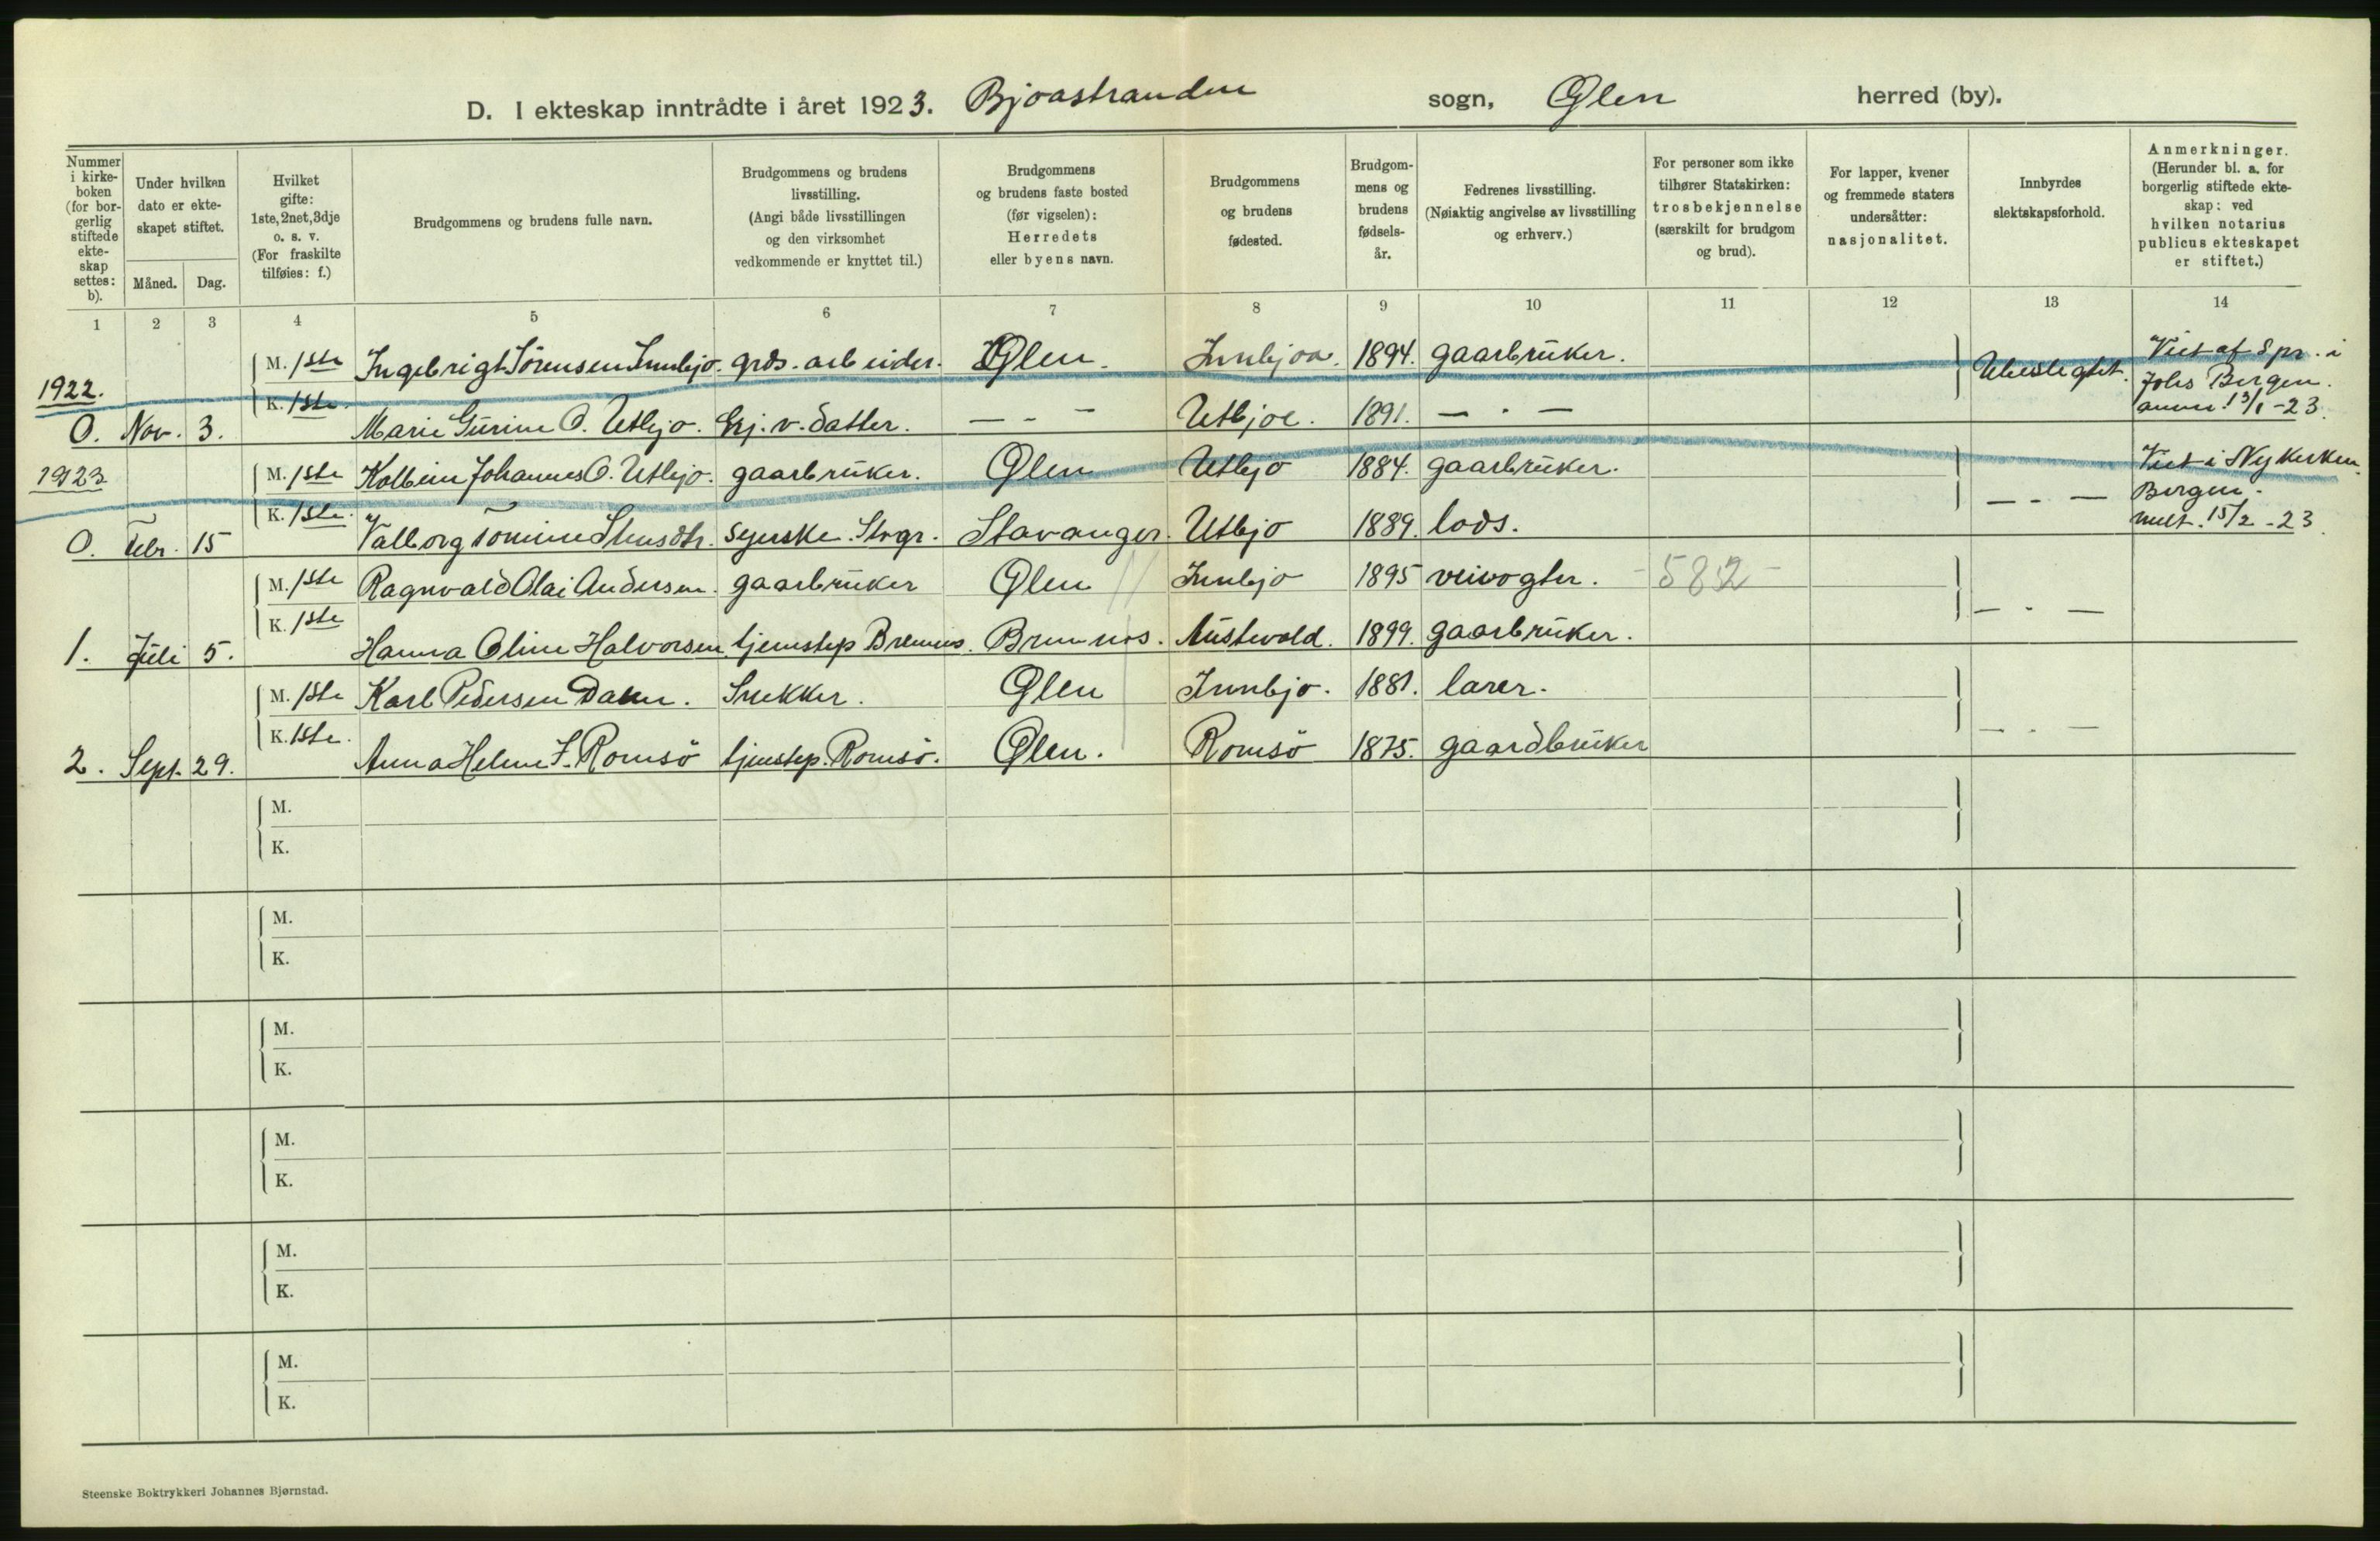 D. I ekteskap inntrådte i året 1923. Bjoastranden sogn, Ølen herred (by).
Nummer i kirkeboken (for borgerlig stiftede ekteskap settes: b).
Under hvilken dato er ekteskapet stiftet.
Måned. Dag.
Hvilket gifte: 1ste, 2net, 3dje o. s. v. (For fraskilte tilføies: f.)
Brudgommens og brudens fulle navn.
Brudgommens og brudens livsstilling. (Angi både livsstillingen og den virksomhet vedkommende er knyttet til.)
Brudgommens og brudens faste bosted (før vigselen): Herredets eller byens navn.
Brudgommens og brudens fødested.
Brudgommens og brudens fødselsår.
Fedrenes livsstilling. (Nøiaktig angivelse av livsstilling og erhverv.)
For personer som ikke tilhører Statskirken: trosbekjennelse (særskilt for brudgom og brud).
For lapper, kvener og fremmede staters undersåtter: nasjonalitet.
Innbyrdes slektskapsforhold.
Anmerkninger. (Herunder bl. a. for borgerlig stiftede ekteskap: ved hvilken notarius publicus ekteskapet er stiftet.)
1 2 3 4 5 6 7 8 9 10 11 12 13 14
M. 1ste Ingebrigt Sörensen Innbjo. grds. arbeider. Ølen. Innbjoa. 1894. gaarbrüker. Ubeslegtet. Viet af Spr. i
1922. Johs Bergen.
K. 1ste. anm. 13/1-23.
O. Nov. 3. Marie Gürine O. Utbjo. grj. v. datter. — - — Utbjoe. 1891. — . —
1923 M. 1ste Kolbein Johannes O. Utbjo. gaarbrüker. Ølen Utbjo 1884. gaarbrüker. — - — Viet i Nykirken.
K. 1ste. Bergen.
O. Febr. 15 Valborg Tomine Stensdtr. syerske. Stvgr. Stavanger. Utbjo 1889. lods. melt. 15/2-23
M. 1ste Ragnvald Olai Andersen. gaarbrüker Ølen Innbjo 1895 veivogter. -582- — . —
K. 1ste
1. Jüli 5. Hanna Oline Halvorsen. tjenstep Bremnes. Bremnes. Aüstevold. 1899. gaarbrüker.
M. 1ste Karl Pedersen Dalen. Snekker. Ølen Innbjo. 1881. lærer. — . —
K. 1ste.
2. Sept. 29. Anna Helene F. Romsö tjenstep. Romsö. Ølen. Romsö 1875. gaardbrüker
M.
K.
M.
K.
M.
K.
M.
K.
M.
K.
M.
K.
Steenske Boktrykkeri Johannes Bjørnstad.